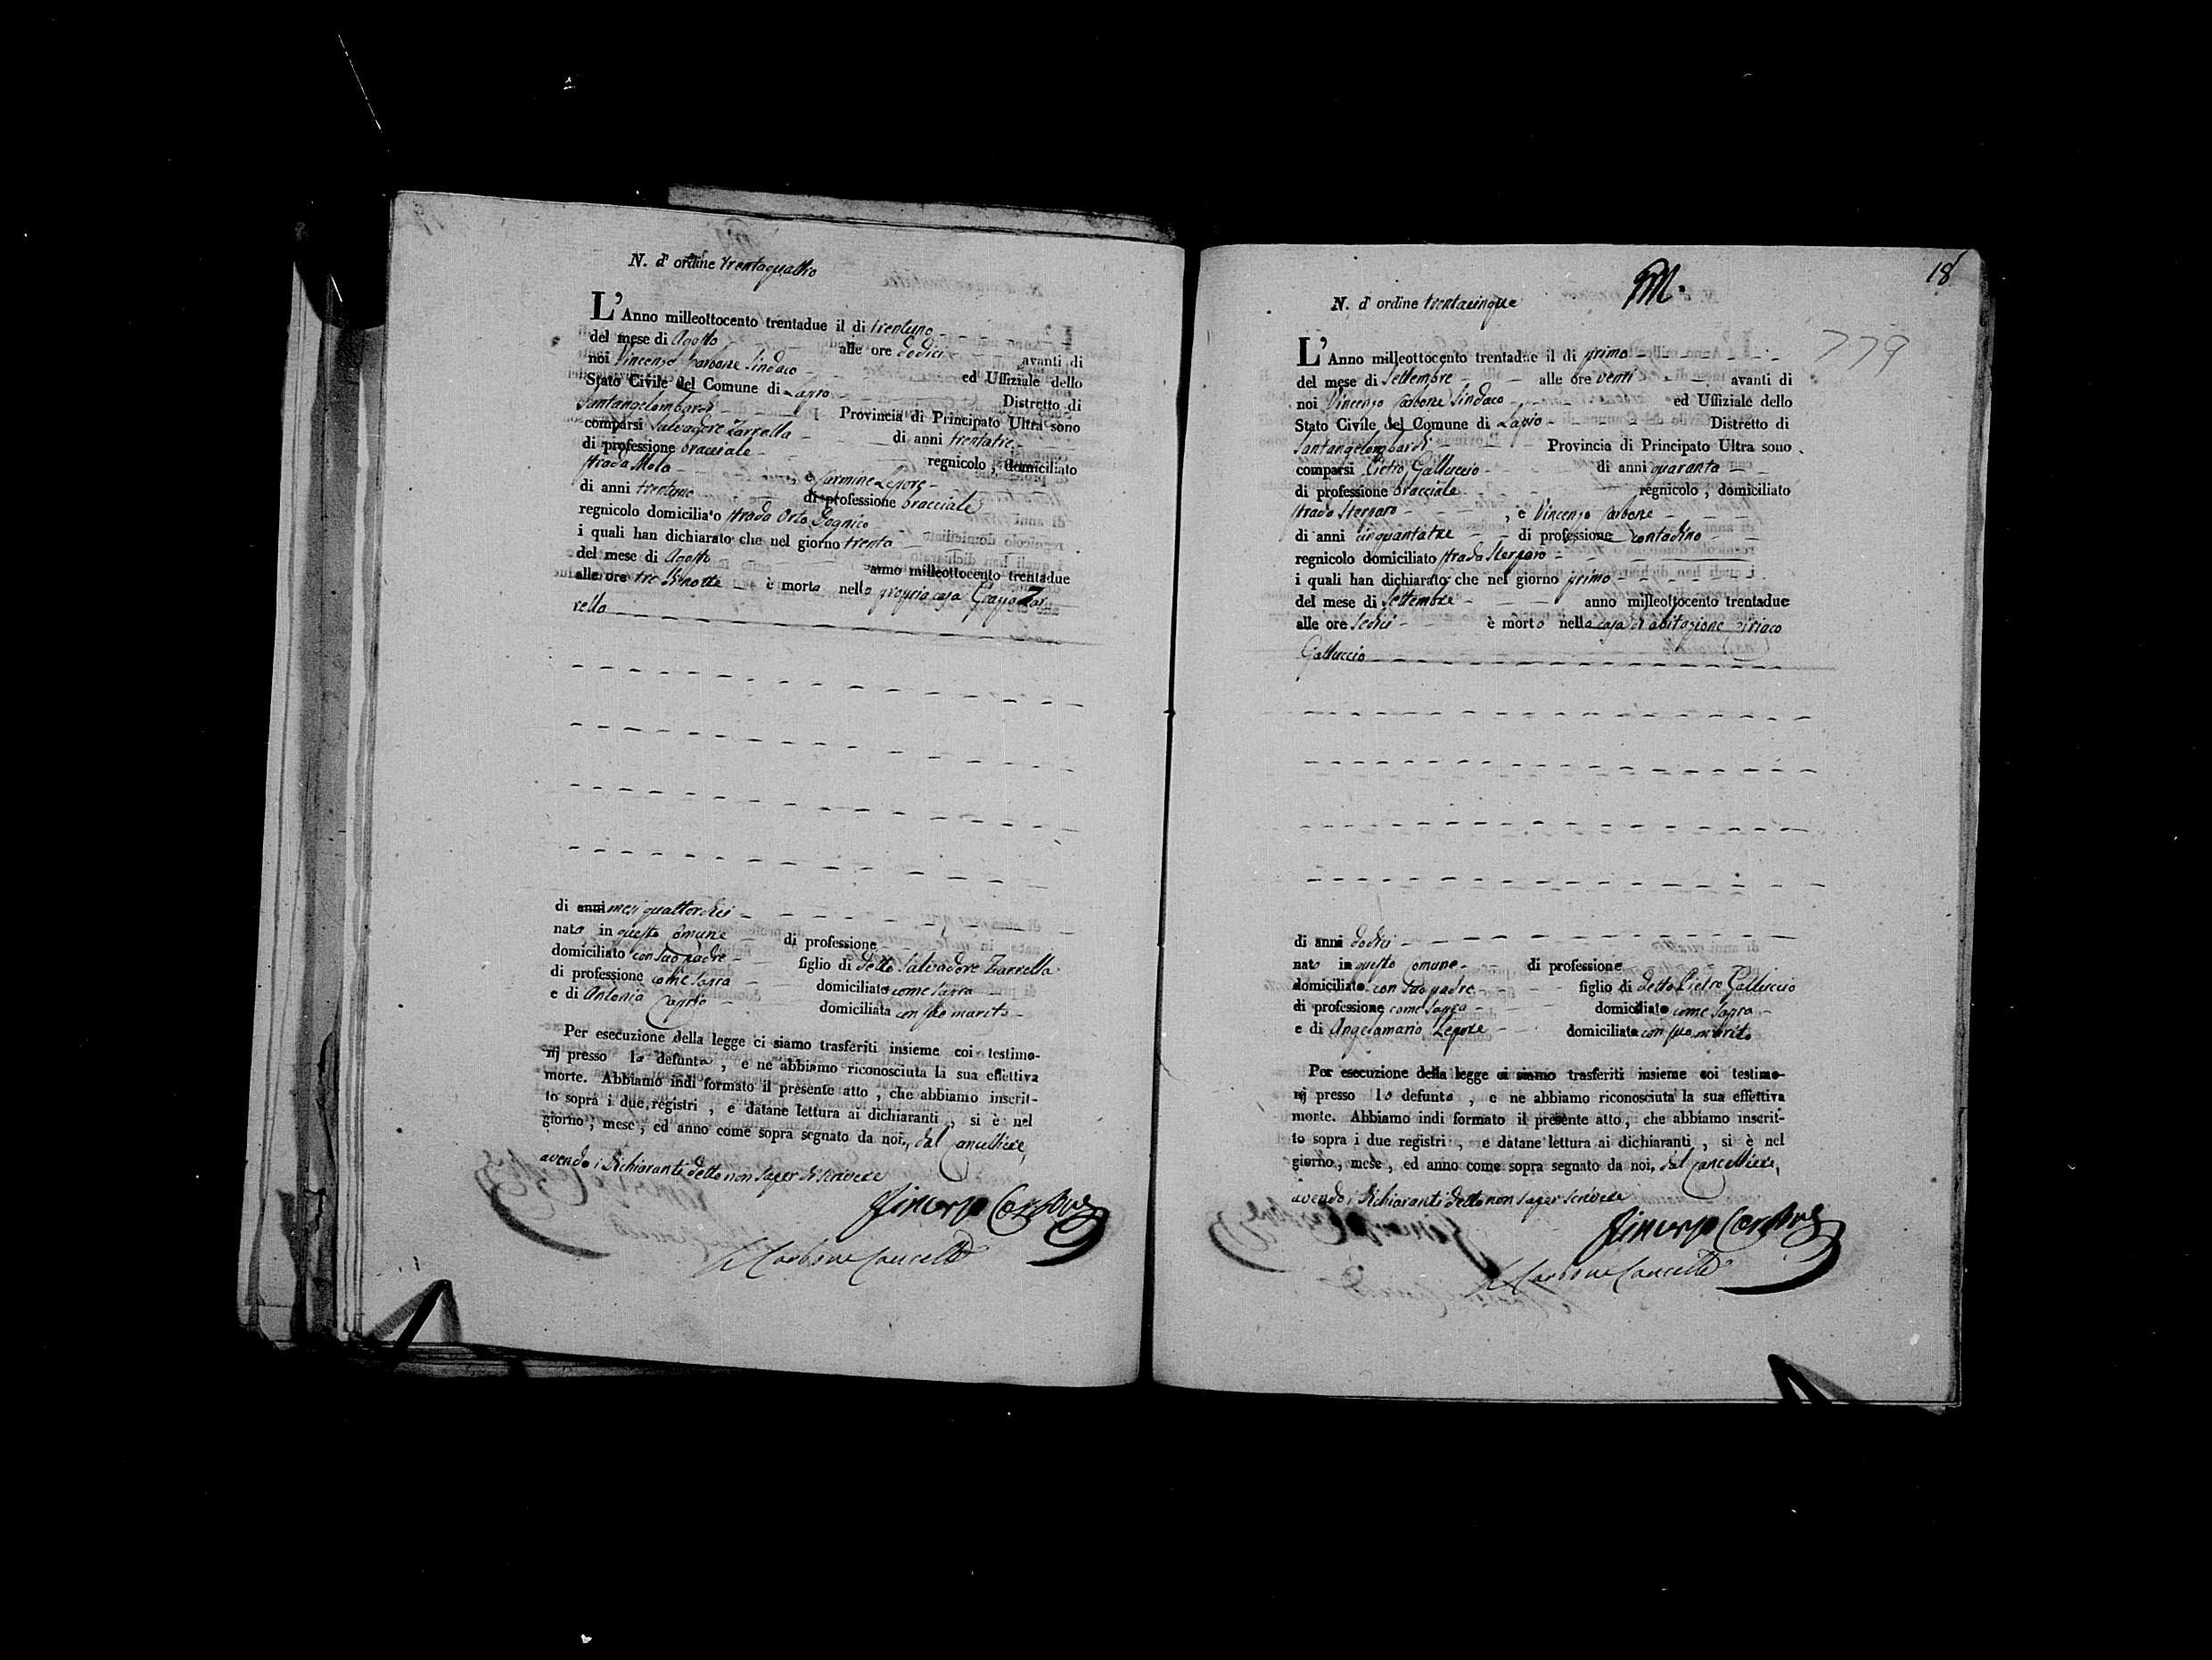 N. d' ordine trentaquattro
L'Anno milleottocento trentadue il di trentuno
del mese di Agosto alle ore dodici avanti di
noi Vincenzo Carbone Sindaco ed Uffiziale dello
Stato Civile del Comune di Lapio Distretto di
Santangelombardi Provincia di Principato Ultra sono
comparsi Salvadore Zarrella di anni trentatre
di professione bracciale regnicolo, domiciliato
strada Mola e Carmine Lepore
di anni trentuno di professione bracciale
regnicolo domiciliato strada Orto
i quali han dichiarato che nel giorno trenta
del mese di Agosto anno milleottocento trentadue
alle ore tre di notte è morta nella propria casa Zar
rella
di anni mesi quattordici
nata in questo Comune di professione
domiciliato con suo padre figlio di detto Salvadore Zarrella
di professione come sopra domiciliato come sopra
e di Antonia domiciliata con suo marito
Per esecuzione della legge ci siamo trasferiti insieme coi testimo-
nj presso la defunta, e ne abbiamo riconosciuta la sua effettiva
morte. Abbiamo indi formato il presente atto, che abbiamo inscrit-
to sopra i due registri, e datane lettura ai dichiaranti, si è nel
giorno, mese, ed anno come sopra segnato da noi, dal Cancelliere,
avendo i dichiaranti detto non saper di scrivere
Vincenzo Carbone
Carbone Cancell
18
M.
779
N. d' ordine trentacinque
L'Anno milleottocento trentadue il di primo
del mese di Settembre alle ore venti avanti di
noi Vincenzo Carbone Sindaco ed Uffiziale dello
Stato Civile del Comune di Lapio Distretto di
Santangelombardi Provincia di Principato Ultra sono
comparsi Pietro Galluccio di anni quaranta
di professione bracciale regnicolo, domiciliato
strada Sterparo, e Vincenzo Carbone
di anni cinquantatre di professione contadino
regnicolo domiciliato strada Sterparo
i quali han dichiarato che nel giorno primo
del mese di Settembre anno milleottocento trentadue
alle ore sedici è morto nella casa di abitazione Ciriaco
Galluccio
di anni dodici
nato in questo Comune di professione
domiciliato con suo padre figlio di detto Pietro Galluccio
di professione come sopra domiciliato come sopra
e di Angelamaria Lepore domiciliata con suo marito
Per esecuzione della legge ci siamo trasferiti insieme coi testimo-
nj presso lo defunto, e ne abbiamo riconosciuta la sua effettiva
morte. Abbiamo indi formato il presente atto, che abbiamo inscrit-
to sopra i due registri, e datane lettura ai dichiaranti, si è nel
giorno, mese, ed anno come sopra segnato da noi, dal Cancelliere,
avendo i dichiaranti detto non saper scrivere
Vincenzo Carbone
Carbone Cancell